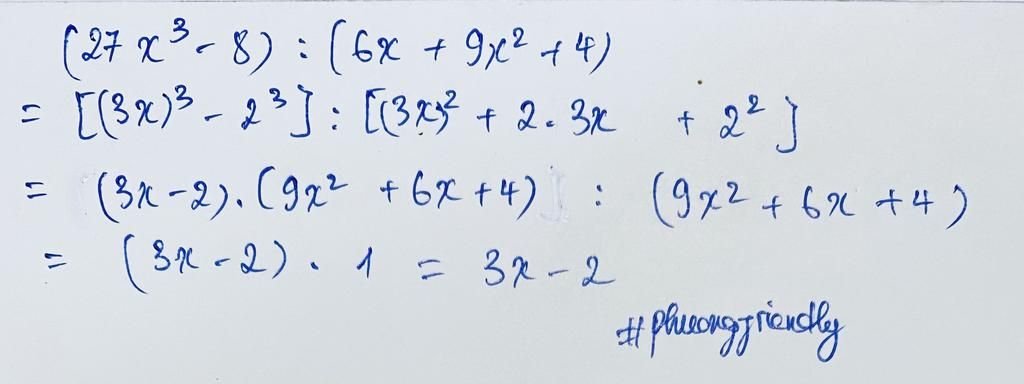 (27x³ - 8) : (6x + 9x² + 4)
= [(3x)³ - 2³] : [(3x)² + 2. 3x + 2²]
= (3x-2).(9x² + 6x + 4) : (9x² + 6x + 4)
= (3x - 2) . 1 = 3x - 2
#phuongfriendly